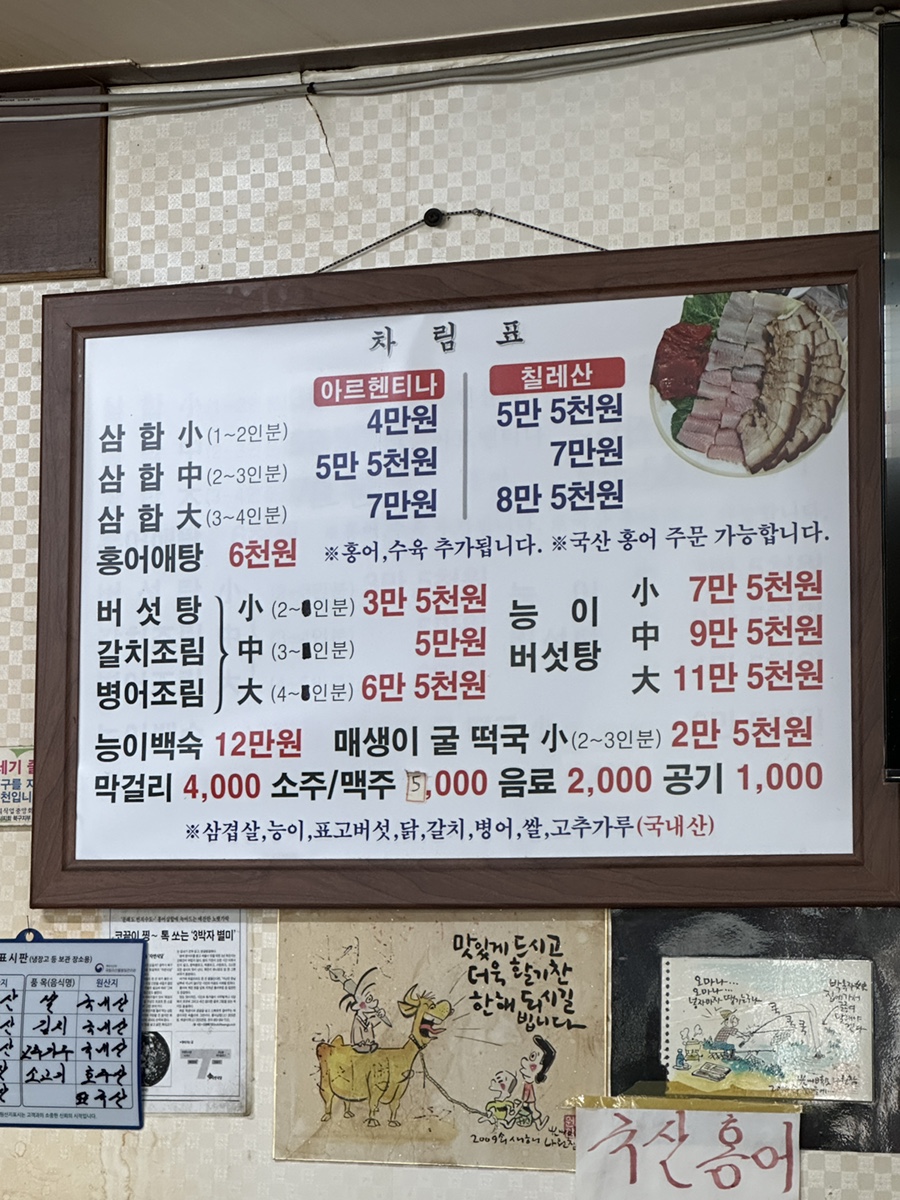 차 림 표
아르헨티나 칠레산
삼 합 小 (1~2인분) 4만원 5만 5천원
삼 합 中 (2~3인분) 5만 5천원 7만원
삼 합 大 (3~4인분) 7만원 8만 5천원
홍어애탕 6천원 ※홍어,수육 추가됩니다. ※국산 홍어 주문 가능합니다.
버 섯 탕 小 (2~인분) 3만 5천원 능 이 小 7만 5천원
갈치조림 中 (3~인분) 5만원 버섯탕 中 9만 5천원
병어조림 大 (4~인분) 6만 5천원 大 11만 5천원
능이백숙 12만원 매생이 굴 떡국 小 (2~3인분) 2만 5천원
막걸리 4,000 소주/맥주 5,000 음료 2,000 공기 1,000
※삼겹살,능이,표고버섯,닭,갈치,병어,쌀,고추가루(국내산)
코끝이 찡~ 톡 쏘는 '3박자 별미'
표시판 (냉장고 등 보관 장소용)
품 목(음식명) 원산지
쌀 국내산
김치 국내산
고추가루 국내산
소고기 호주산
맛있게 드시고
더욱 활기찬
한해 되시길
빕니다
2009년 새해
오마나...
오마나...
국산 홍어